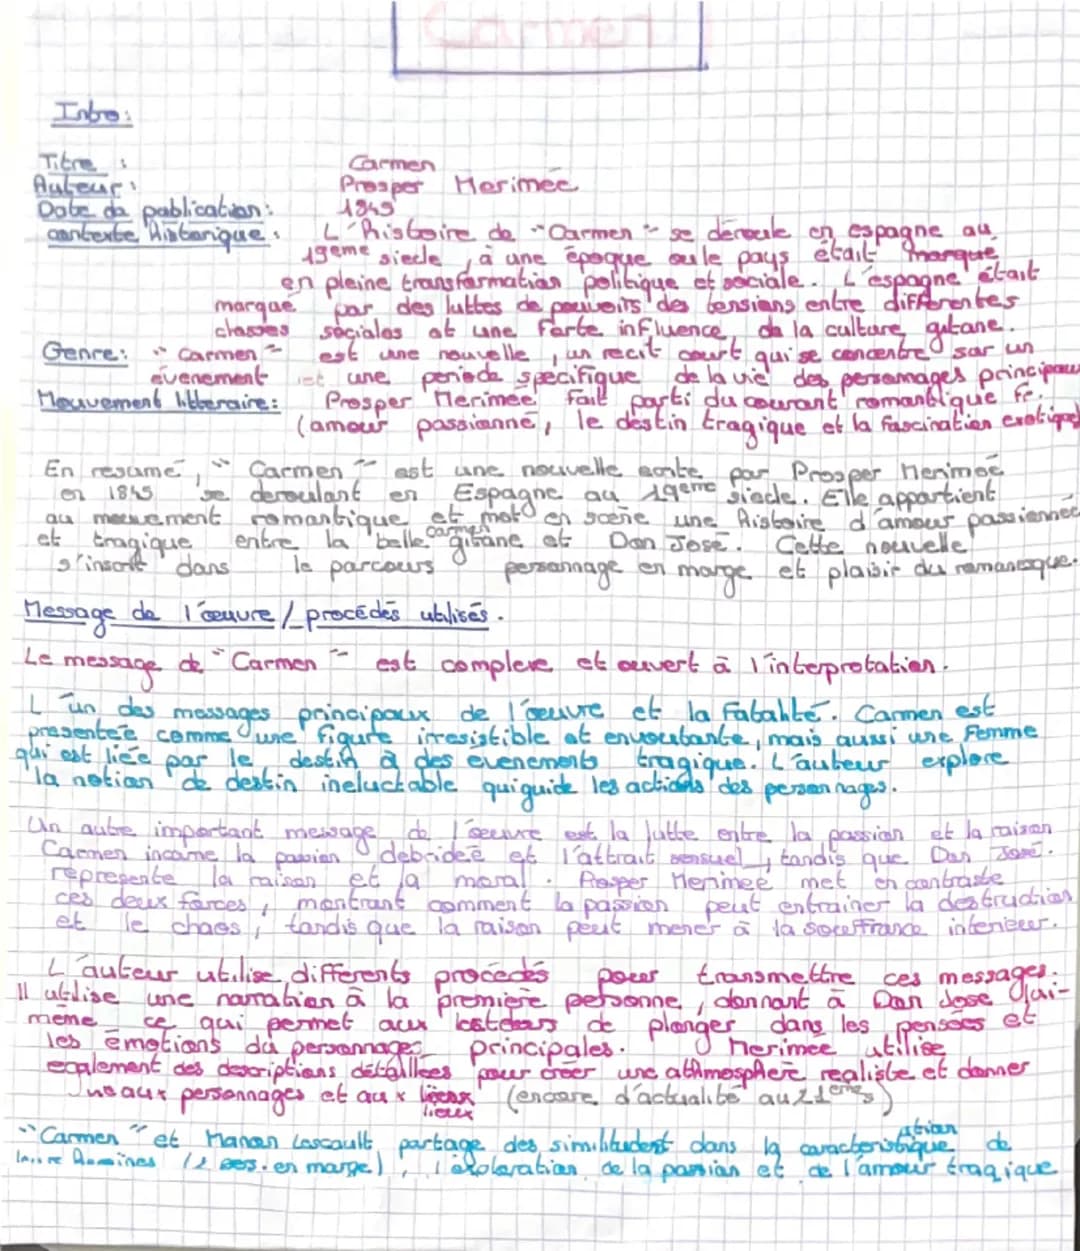 Carmen
Intro:
Titre : Carmen
Auteur : Prosper Merimée
Date de publication: 1845
contexte historique : L'histoire de "Carmen" se déroule en espagne au
19eme siecle, à une époque ou le pays était marqué
en pleine transformation politique et sociale. L'espagne était
marqué par des luttes de pouvoirs des tensions entre différentes
classes sociales et une forte influence de la culture gitane.
Genre: "Carmen" est une nouvelle, un recit court qui se concentre sur un
évenement et une periode specifique de la vie des personnages principaux
Mouvement litteraire: Prosper Merimée fait parti du courant romantique fr.
(amour passionné, le destin tragique et la fascination exotique)
En resumé, "Carmen" est une nouvelle ecrite par Prosper Merimée
en 1845 se deroulant en Espagne au 19eme siecle. Elle appartient
au mouvement romantique et met en scène une histoire d'amour passionnée
et tragique entre la belle carmen gitane et Don José. Cette nouvelle
s'inscrit dans le parcours personnage en marge et plaisir du romanesque.
Message de l'œuvre / procédés utilisés.
Le message de "Carmen" est complexe et ouvert à l'interprétation.
L'un des messages principaux de l'œuvre et la Fatalité. Carmen est
presentée comme une figure irresistible et envoutante, mais aussi une Femme
qui est liée par le destin à des evenements tragique. L'auteur explore
la notion de destin ineluctable qui guide les actions des personnages.
Un autre important message de l'œuvre est la lutte entre la passion et la raison
Carmen incarne la passion debridée et l'attrait sensuel, tandis que Don José.
represente la raison et la moral. Prosper Merimée met en contraste
ces deux forces, montrant comment la passion peut entrainer la destruction
et le chaos, tandis que la raison peut mener à la souffrance interieur.
L'auteur utilise differents procédés pour transmettre ces messages.
Il utilise une narration à la première personne, donnant à Don José lui-
même ce qui permet aux lecteurs de plonger dans les pensées et
les émotions du personnages principales. Merimée utilise
egalement des descriptions détaillées pour créer une athmosphère realiste et donner
aux personnages et aux lieux (encore d'actualité au 21eme s)
"Carmen" et Manon Lescault partage des similitudest dans la caractéristique de
(2 pers. en marge), l'exploration de la passion et de l'amour tragique